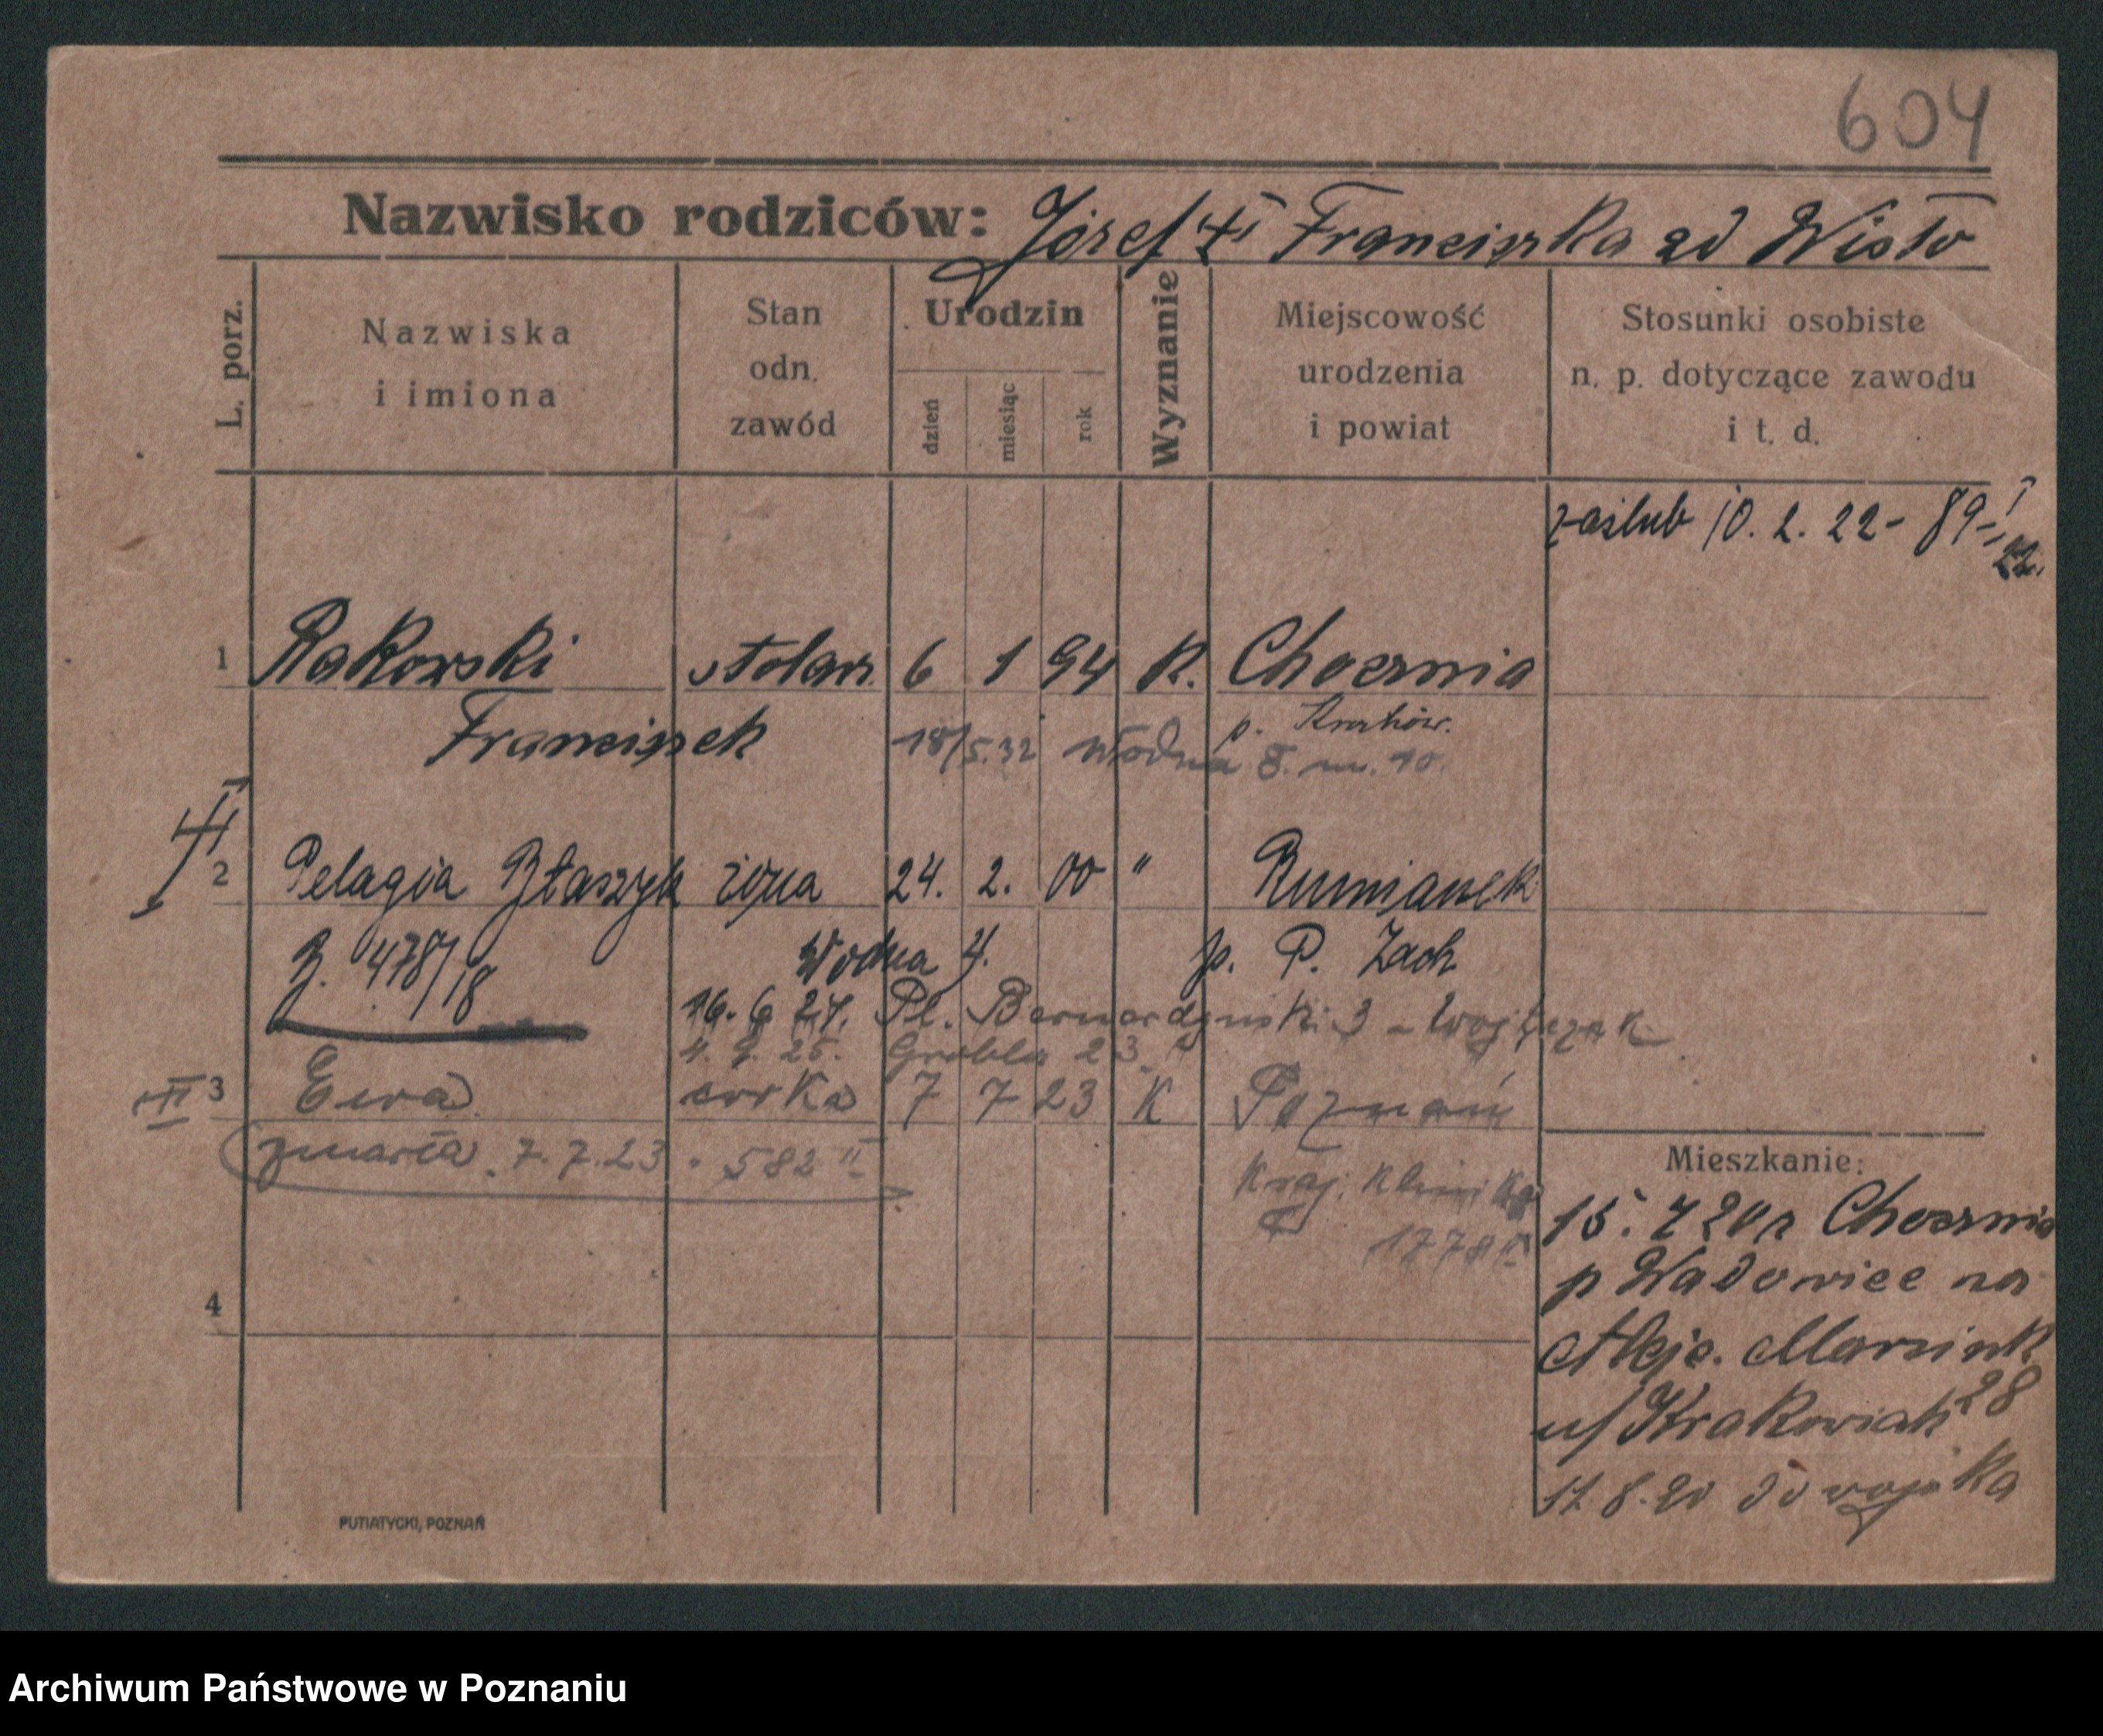 604
Nazwisko rodziców: Józef Franciszka zd Wisło
L. porz.
Nazwiska i imiona
Stan odn. zawód
Urodzin
dzień
miesiąc
rok
Wyznanie
Miejscowość urodzenia i powiat
Stosunki osobiste n. p. dotyczące zawodu i t. d.
zaślub 10. 2. 22 - 89 - I 22.
1 Rakowski stolarz. 6 1 94 K. Chocznia
Franciszek p. Kraków.
18/5.32 Wodna 8. m. 10.
2 Pelagia Błaszyk żona 24. 2. 00 " Rumianek
B. 478/18 Wodna 4. p. P. Zach
16. 6 24. Pl. Bernardyński 3 - Wojtczak
4. 9. 25. Grobla 23
3 Ewa córka 7 7 23 K Poznań
zmarła. 7. 7. 23. 582 II
Kraj. Klinika
1778 II
Mieszkanie:
15. 7 20 r Chocznia
p Wadowice na
Aleje. Marcink 28
u/ Krakowiak
4
17. 8. 20 do wojska
PUTIATYCKI, POZNAŃ
Archiwum Państwowe w Poznaniu